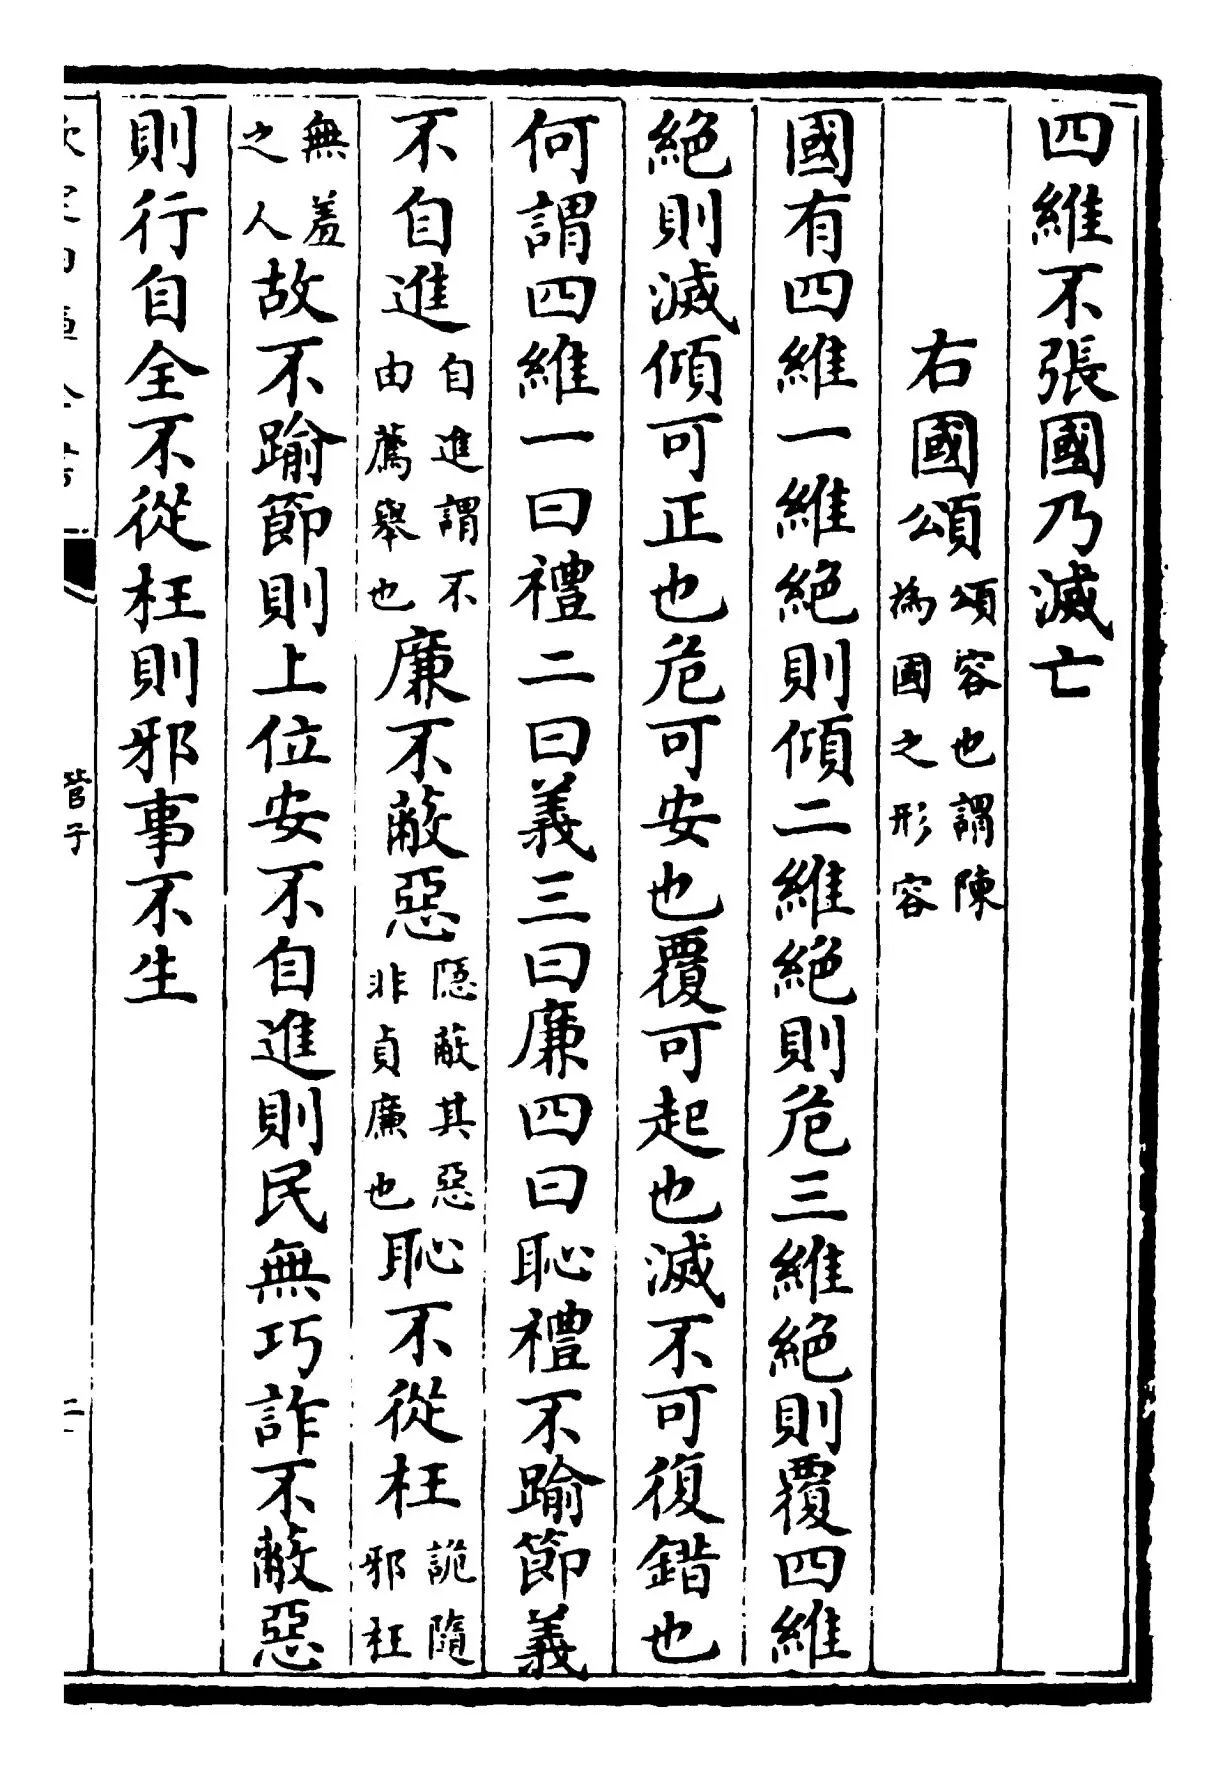 四維不張國乃滅亡
右國頌頌容也謂陳為國之形容
國有四維一維絕則傾二維絕則危三維絕則覆四維
絕則滅傾可正也危可安也覆可起也滅不可復錯也
何謂四維一曰禮二曰義三曰廉四曰恥禮不踰節義
不自進自進謂不由薦舉也廉不蔽惡隱蔽其惡非貞廉也恥不從枉詭隨邪枉
無羞之人故不踰節則上位安不自進則民無巧詐不蔽惡
則行自全不從枉則邪事不生
管子